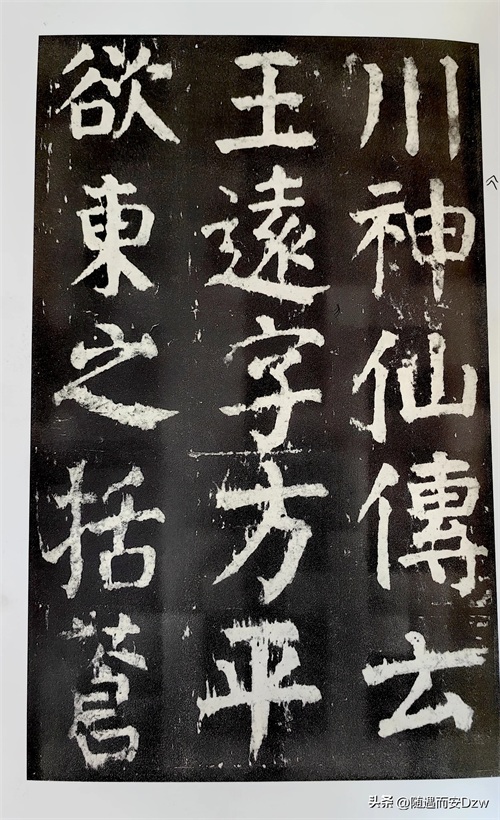 川神仙傳云
王遠字方平
欲東之括蒼
头条 @随遇而安Dzw